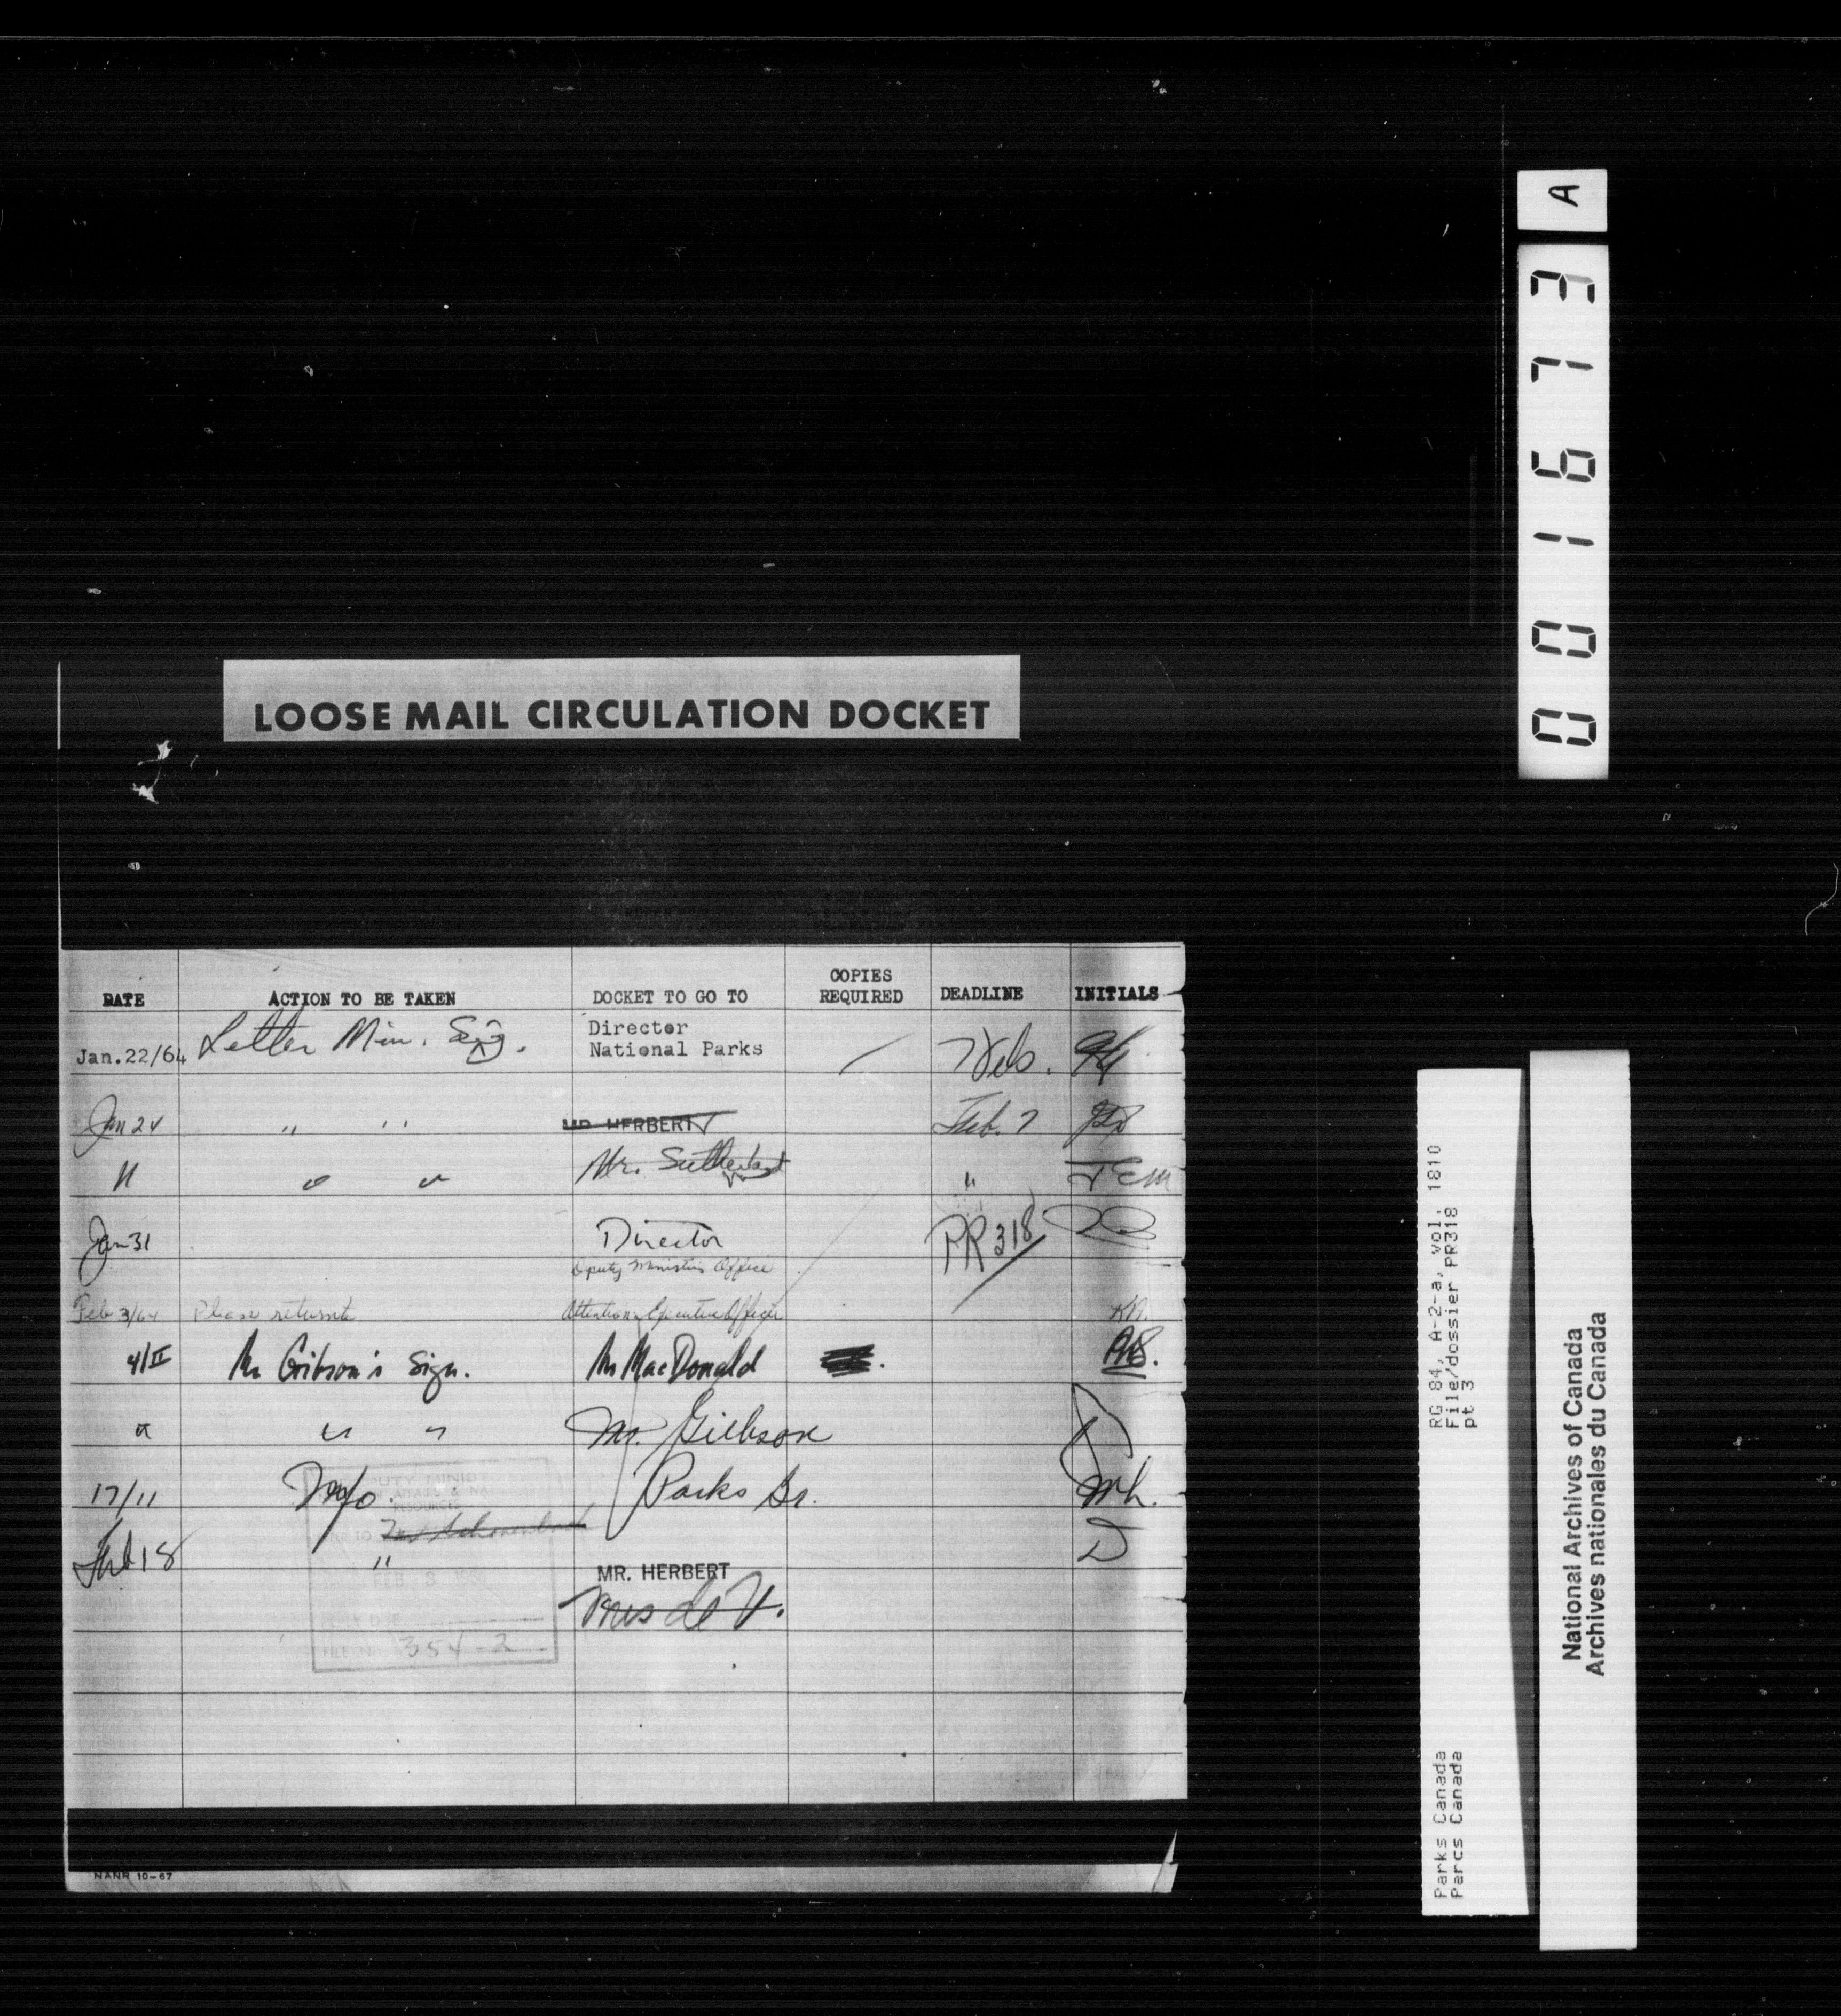 A
001673
LOOSE MAIL CIRCULATION DOCKET
REFER FILE TO
DATE ACTION TO BE TAKEN DOCKET TO GO TO COPIES REQUIRED DEADLINE INITIALS
Jan.22/64 Letter Min. Sig. Director
National Parks 7 Feb.
Jan 24 " " MR. HERBERT Feb. 7
" " " Mr. Sutherland " JEM
Jan 31 Director PR 318
Deputy Ministers Office
Feb 3/64 Please return to Attention Executive Officer
4/II Mr Gibson's Sign. Mr MacDonald
" " " Mr. Gibson
17/11 Info. Parks Br. Mh.
Feb 18 " MR. HERBERT D
Mrs de V.
DEPUTY MINISTER
RESOURCES
FEB 3
REPLY DUE
FILE No. 354-2
NANR 10-67
RG 84, A-2-a, vol. 1810
File/dossier PR318
pt 3
Parks Canada
Parcs Canada
National Archives of Canada
Archives nationales du Canada